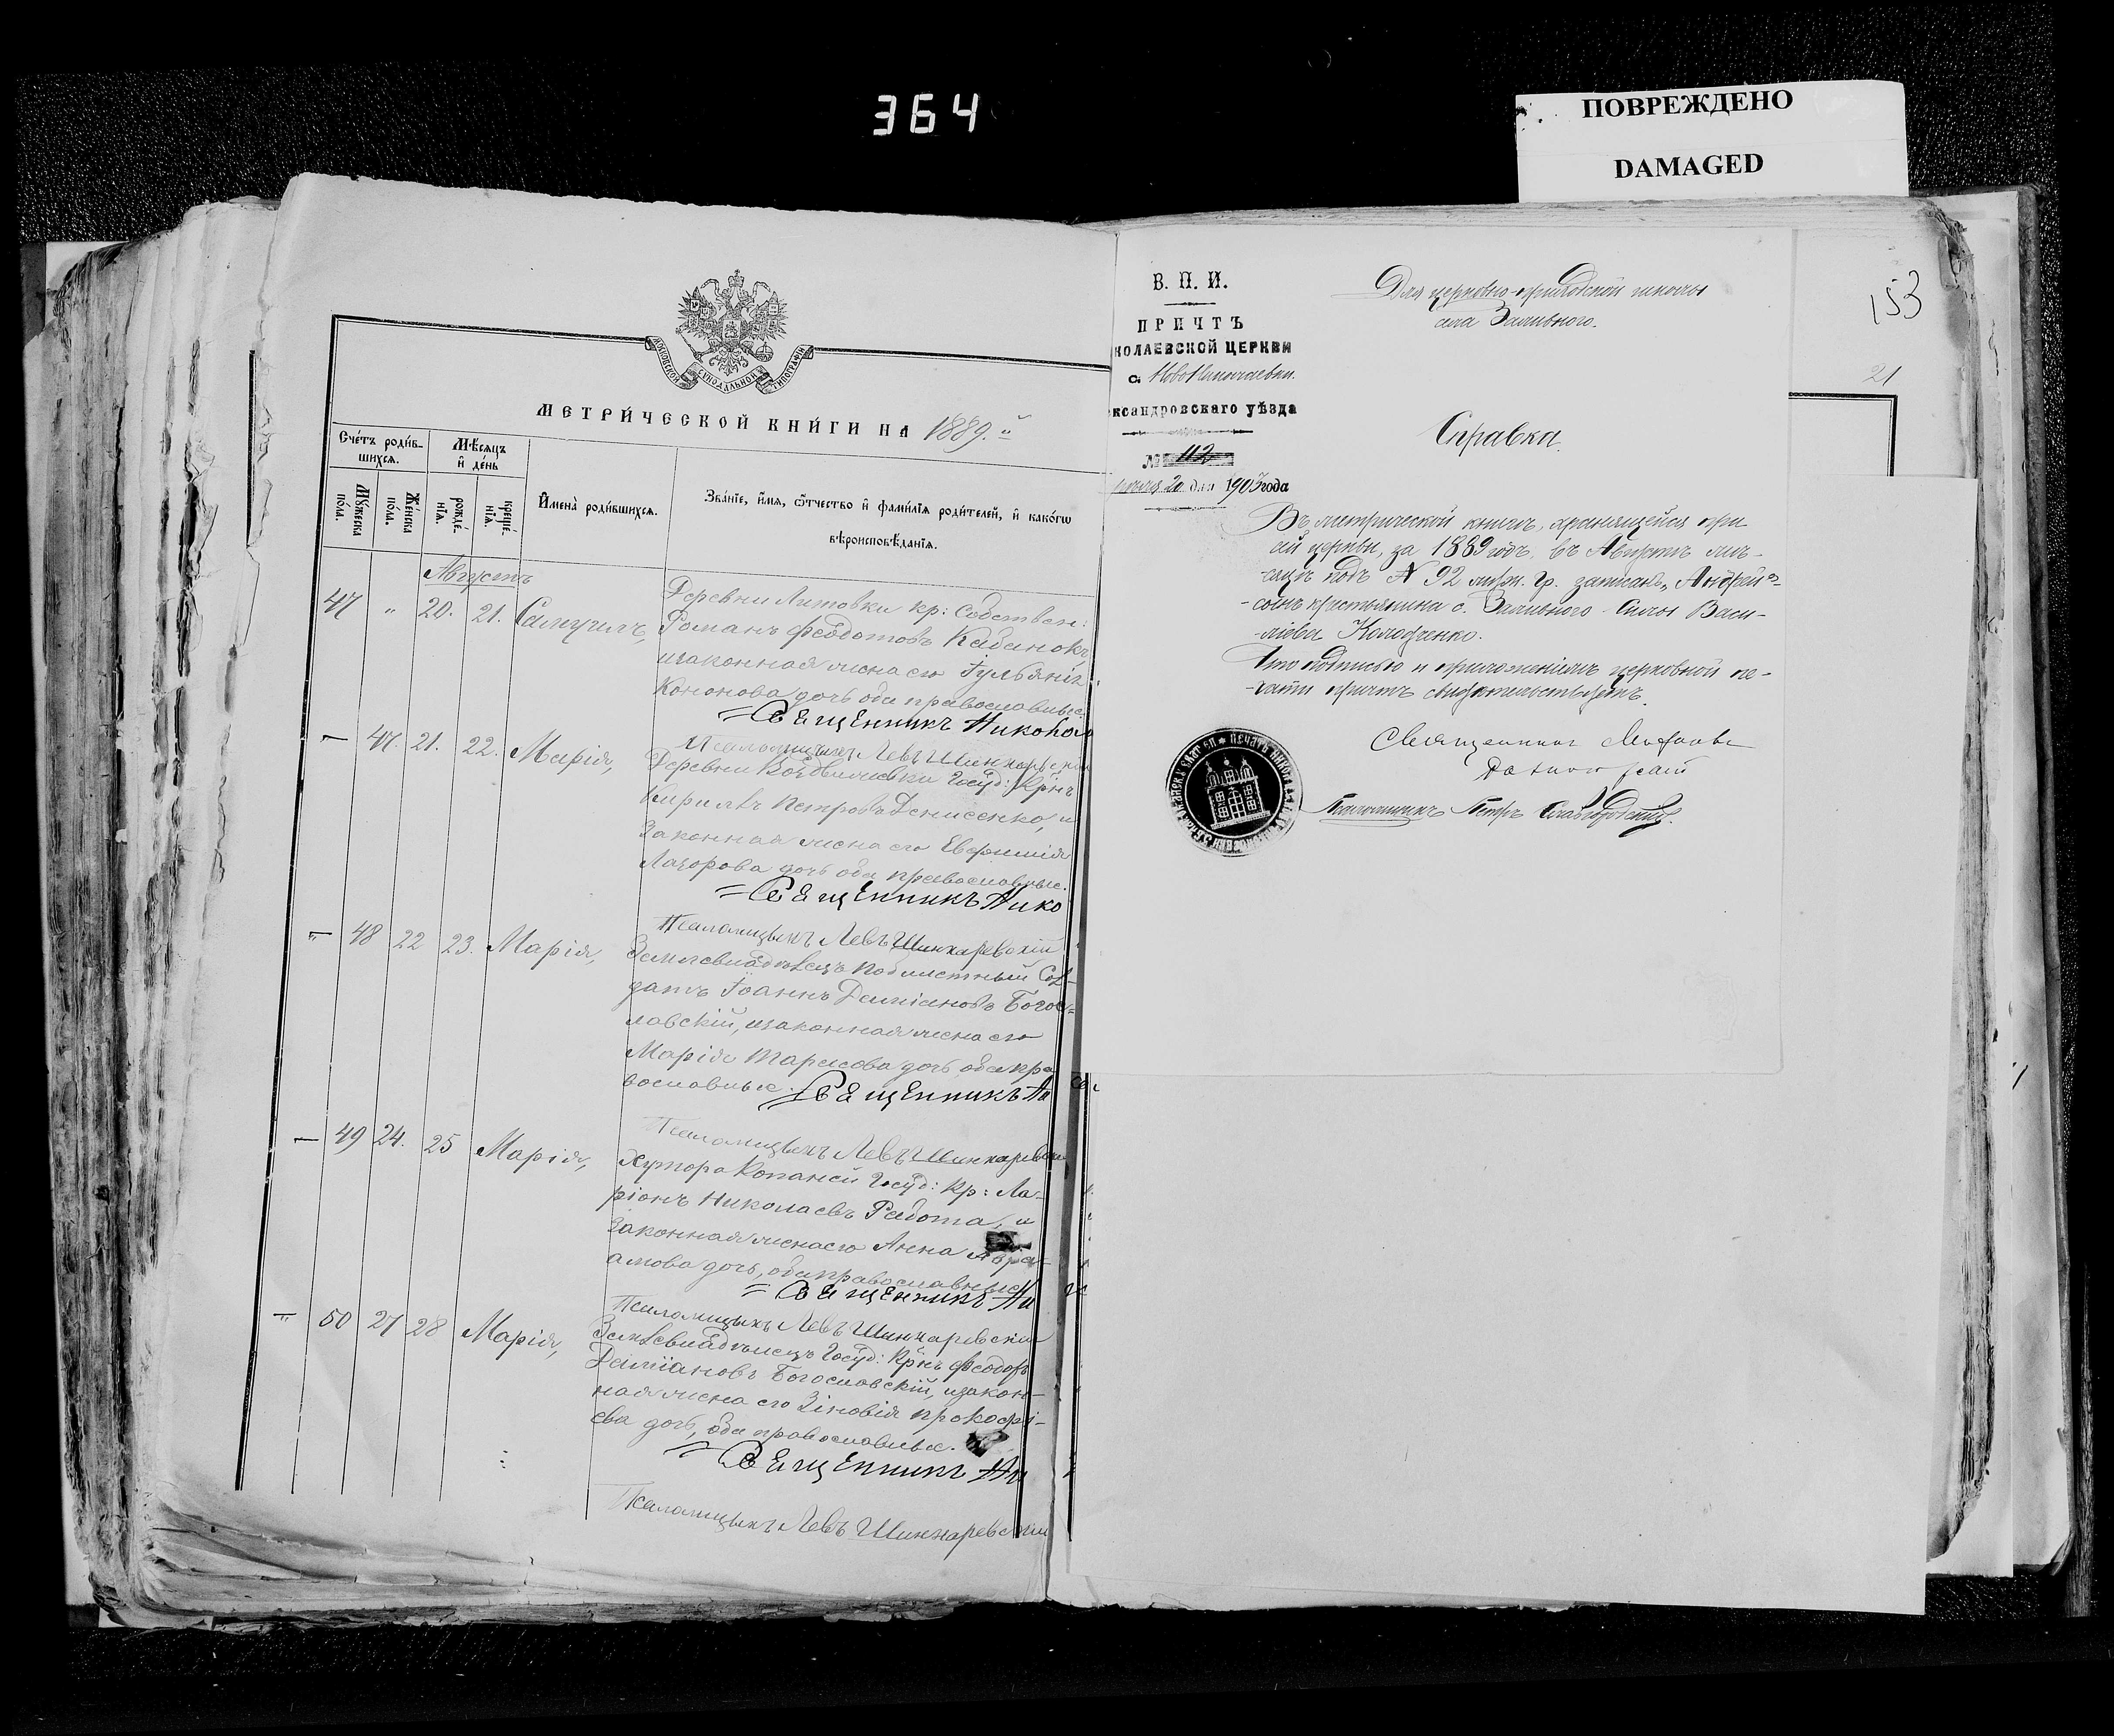 364
ПОВРЕЖДЕНО
DAMAGED
МОСКОВСКОЙ СѴНОДАЛЬНОЙ ТИПОГРАФІИ
МЕТРИ́ЧЕСКОЙ КНИ́ГИ НА 1889.й
Сче́тъ роди́вшихсѧ.
Мѣ́сѧцъ и҆ де́нь
Мꙋ́жеска по́ла.
Же́нска по́ла.
рожде́нїѧ.
креще́нїѧ.
И҆мена̀ роди́вшихсѧ.
Зва́нїе, и҆́мѧ, ѻ҆́тчество и҆ фами́лїѧ роди́телей, и҆ како́гѡ
вѣроисповѣ́данїѧ.
Августъ
47 " 20. 21. Самуилъ,
Деревни Литовки кр: Собствен:
Романъ Феодотовъ Кабанокъ,
изаконная жена его Іульянія
Кононова дочь оба православные.
Священникъ Никола
Псаломщикъ Левъ Шинкаревскій
" 47. 21. 22. Марія,
Деревни Воздвижевки Госуд: Крнъ
Кириллъ Петровъ Денисенко, и
Законная жена его Евфимія
Лазорова дочь оба православные.
Священникъ Нико
Псаломщикъ Левъ Шинкаревскій
" 48 22 23. Марія,
Землевладѣлецъ Солдатъ Іоаннъ Даміановъ Богос-
ловскій, изаконная жена его
Марія Тарасова дочь, оба пра
вославные. Священникъ Ни
Псаломщикъ Левъ Шинкаревскій
" 49 24. 25 Марія,
Хутора Копаней Госуд: Кр: Ла-
ріонъ Николаевъ Работа, и
Законная жена его Анна Авра-
амова дочь, оба православные
Священникъ Ни
Псаломщикъ Левъ Шинкаревскій
" 50 27 28 Марія,
Землевладѣлецъ Госуд: Крнъ Феодоръ
Даміановъ Богословскій, изакон-
ная жена его Зіновія Прокофі-
ева дочь, оба православные.
Священникъ Ни
Псаломщикъ Левъ Шинкаревскій
В. П. И.
ПРИЧТЪ
КОЛАЕВСКОЙ ЦЕРКВИ
с. Новониколаевки.
ксандровскаго уѣзда
№ 112
20 дня 1903 года
Для церковно-приходской школы
села Заливного.
153
21
Справка.
Въ метрической книгѣ, хранящейся при
сей церкви, за 1889 годъ, въ Августѣ мѣ-
сяцѣ подъ № 92 муж. гр. записанъ „Андрей"
сынъ крестьянина с. Заливного Силы Васи-
ліева Колодченко.
Что подписью и приложеніемъ церковной пе-
чати причтъ свидѣтельствуетъ.
Священникъ
Псаломщикъ Петръ Славгородскій.